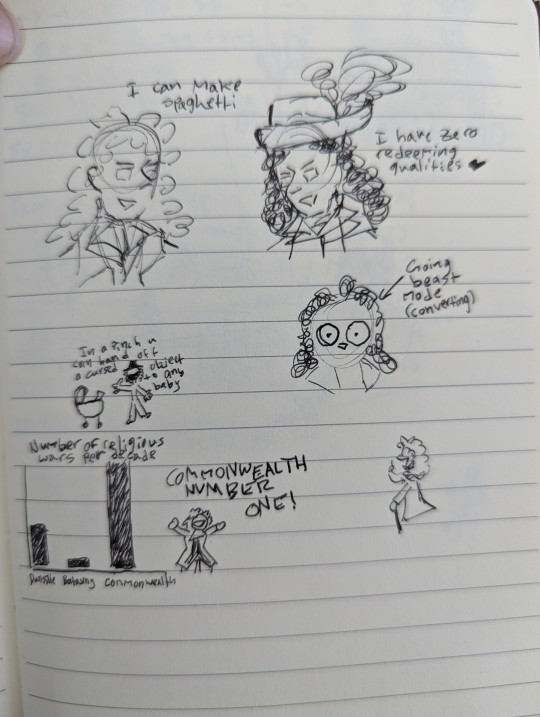 I can make
spaghetti
I have zero
redeeming
qualities
Going
beast
mode
(converting)
In a pinch u
can hand off
a cursed object
to any
baby
Number of religious
wars per decade
COMMONWEALTH
NUMBER
ONE!
Commonwealth